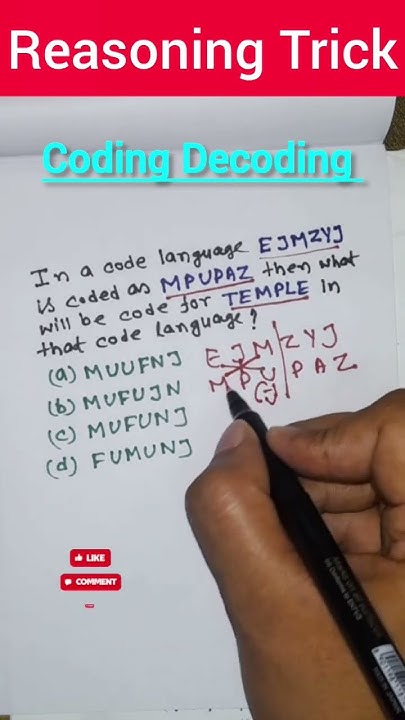 Reasoning Trick
Coding Decoding
In a code language EJMZYJ
is coded as MPUPAZ then what
will be code for TEMPLE in
that code language?
(a) MUUFNJ
(b) MUFUJN
(c) MUFUNJ
(d) FUMUNJ
E J M Z Y J
M P U P A Z
LIKE
COMMENT